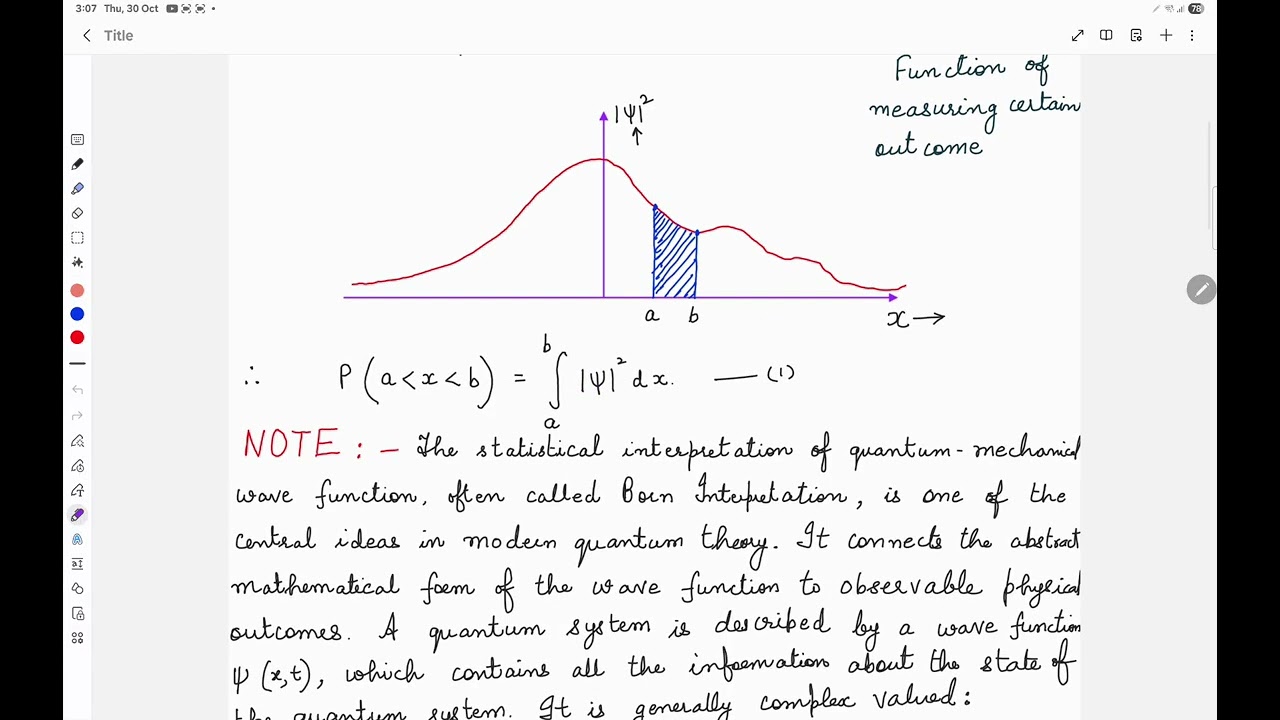 3:07 Thu, 30 Oct
78
Title
Function of
measuring certain
outcome
|Ψ|²
a b
x →
∴ P(a<x<b) = ∫ₐᵇ |Ψ|² dx. —— (1)
NOTE: - The statistical interpretation of quantum-mechanical
wave function, often called Born Interpretation, is one of the
central ideas in modern quantum theory. It connects the abstract
mathematical form of the wave function to observable physical
outcomes. A quantum system is described by a wave function
Ψ (x,t), which contains all the information about the state of
the quantum system. It is generally complex valued: